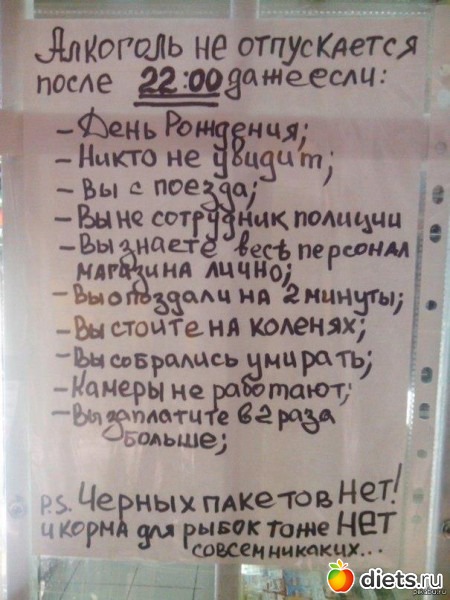 Алкоголь не отпускается
после 22:00 даже если:
- День Рождения;
- Никто не увидит;
- Вы с поезда;
- Вы не сотрудник полиции
- Вы знаете весь персонал
магазина лично;
- Вы опоздали на 2 минуты;
- Вы стоите на коленях;
- Вы собрались умирать;
- Камеры не работают;
- Вы заплатите в 2 раза
больше;
P.S. Черных пакетов НЕТ!
и корма для рыбок тоже НЕТ
совсем никаких...
diets.ru
pikabu.ru